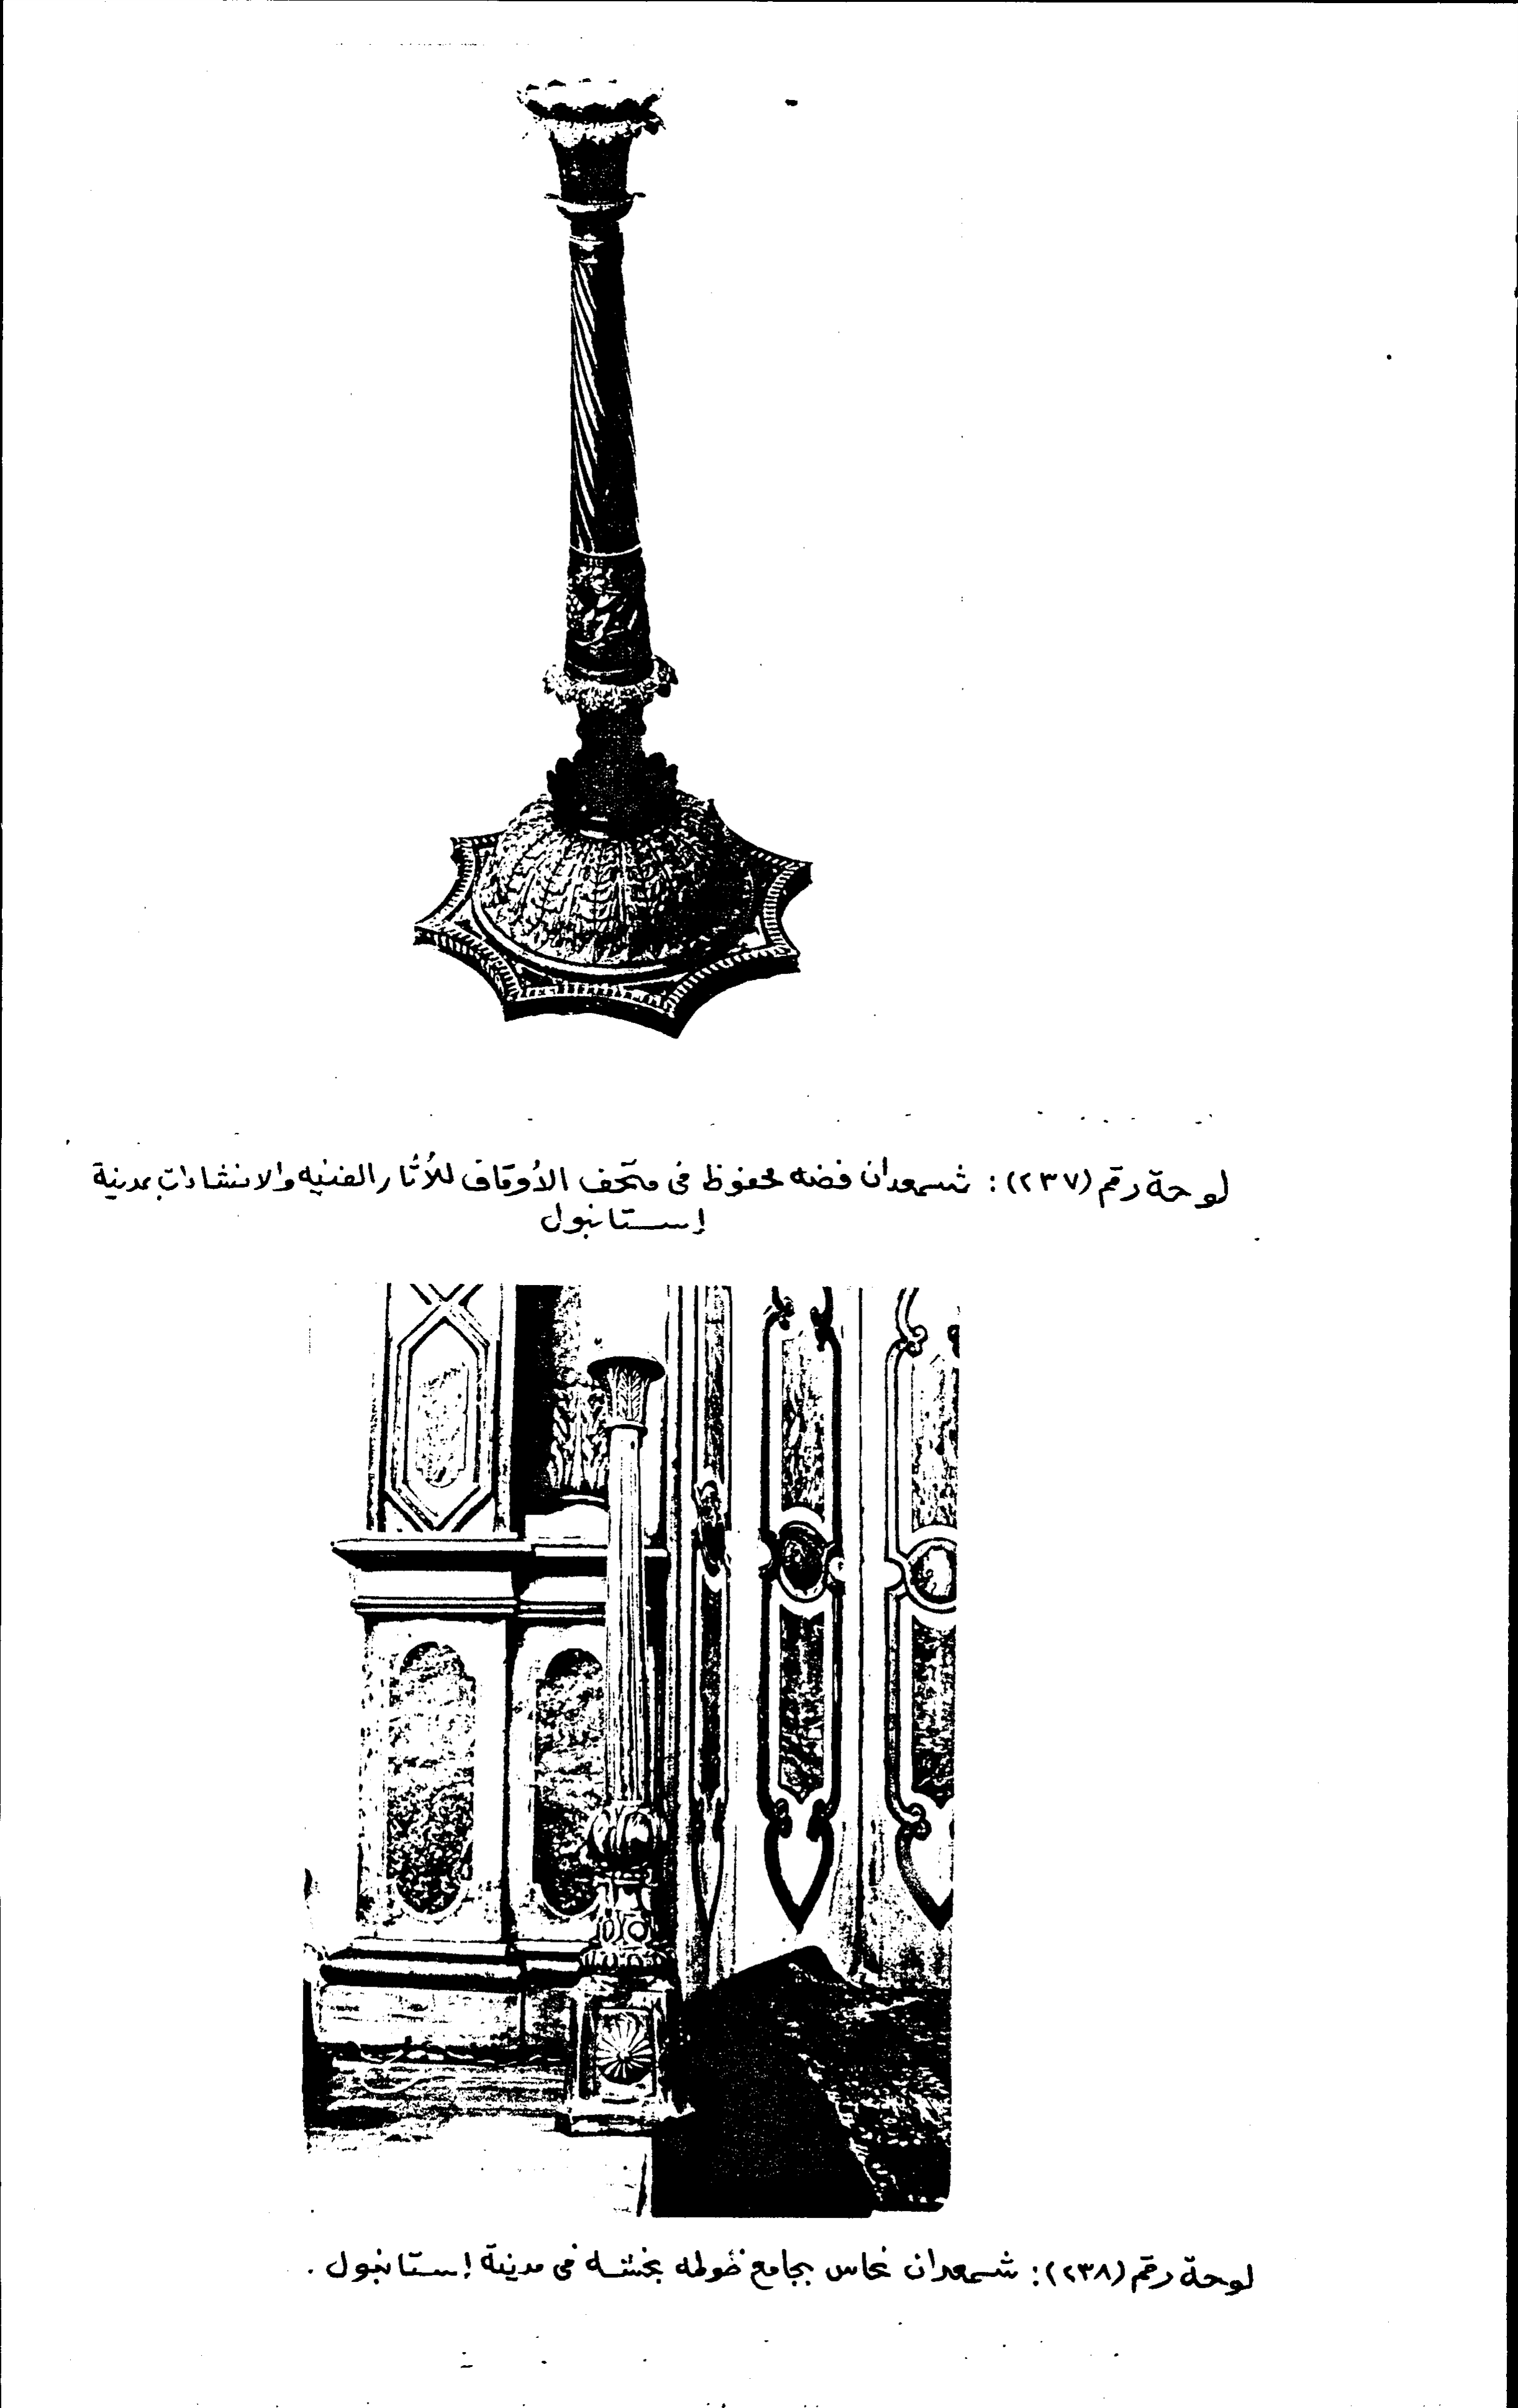 لوحة رقم (٢٣٧): شمعدان فضه محفوظ فى متحف الأوقاف للأثار الفنيه والانشاءات بمدينة
إستانبول
لوحة رقم (٢٣٨): شمعدان نحاس بجامع ضولمه بغشه فى مدينة إستانبول .